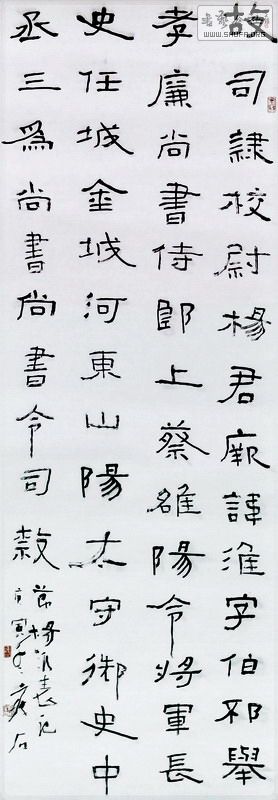 故司隸校尉楊君厥諱淮字伯邳舉
孝廉尚書侍郎上蔡雒陽令將軍長
史任城金城河東山陽太守御史中
丞三為尚書尚書令司隸
節楊淮表記
寅冬石
WWW.SHUFA.ORG